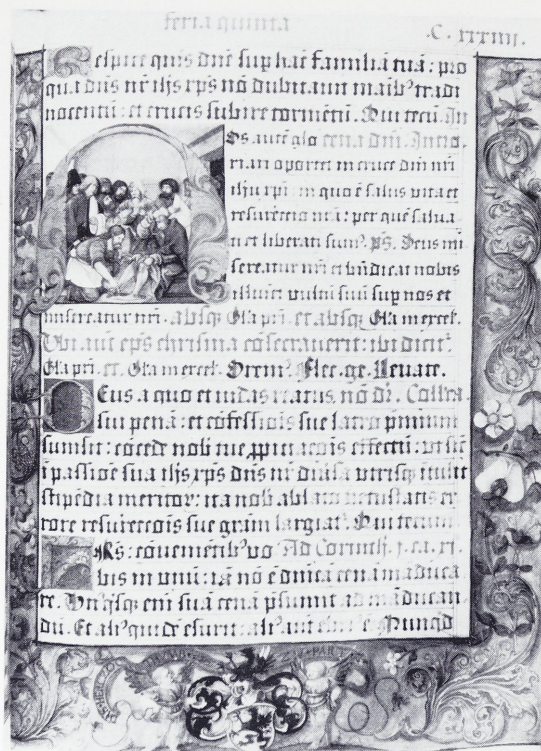 feria quinta
.C. xxxiiii.
Respice quis dñe sup hāc familiā tuā: pro
qua dñs nr̄ ihs xp̄s nō dubitauit maibꝰ tradi
nocentiū: et crucis subire tormētū. Qui tecū. In
cena dñi. Intro.
Nos autē glo
riari oportet in cruce dñi nr̄i
ihu xpi: in quo ē salus vita et
resurrectio nr̄a: per quē salua
ti et liberati sumꝰ. ps. Deus mi
sereatur nr̄i et bn̄dicat nobis
illuīet vultū suū sup nos et
misereatur nr̄i. absqꝫ Gl̄a pr̄i. et absqꝫ Gl̄a in excel.
Ubi aūt ep̄s chrisma cōsecrauerit: ibi dicitꝰ
Gl̄a pr̄i. et. Gl̄a in excel. Oremꝯ. Flec. ge. Leuate.
Deus a quo et iudas reatus nō Collecta.
sui penā: et cōfessiōis sue latro premium
sumsit: cōcede nob tue ppiciacōis effectū: vt sicꝰ
ī passiōe sua ihs xp̄s dñs nr̄ diuersa vtrisqꝫ ītulit
stipēdia meritoꝝ: ita nob ablato vetustatis er
rore resurrectōis sue grām largiatꝰ. Qui tecum
Frs: cōueniētibꝰ vo Ad Corinth. j. ca. xi.
bis in vnū: iā nō ē dn̄icā cenā māduca
re. Vnꝰqꝫsqꝫ enī suā cenā p̄sumit ad māducan
dū. Et aliꝰ quidē esurit: aliꝰ aūt ebriꝰ ē. Nunqd